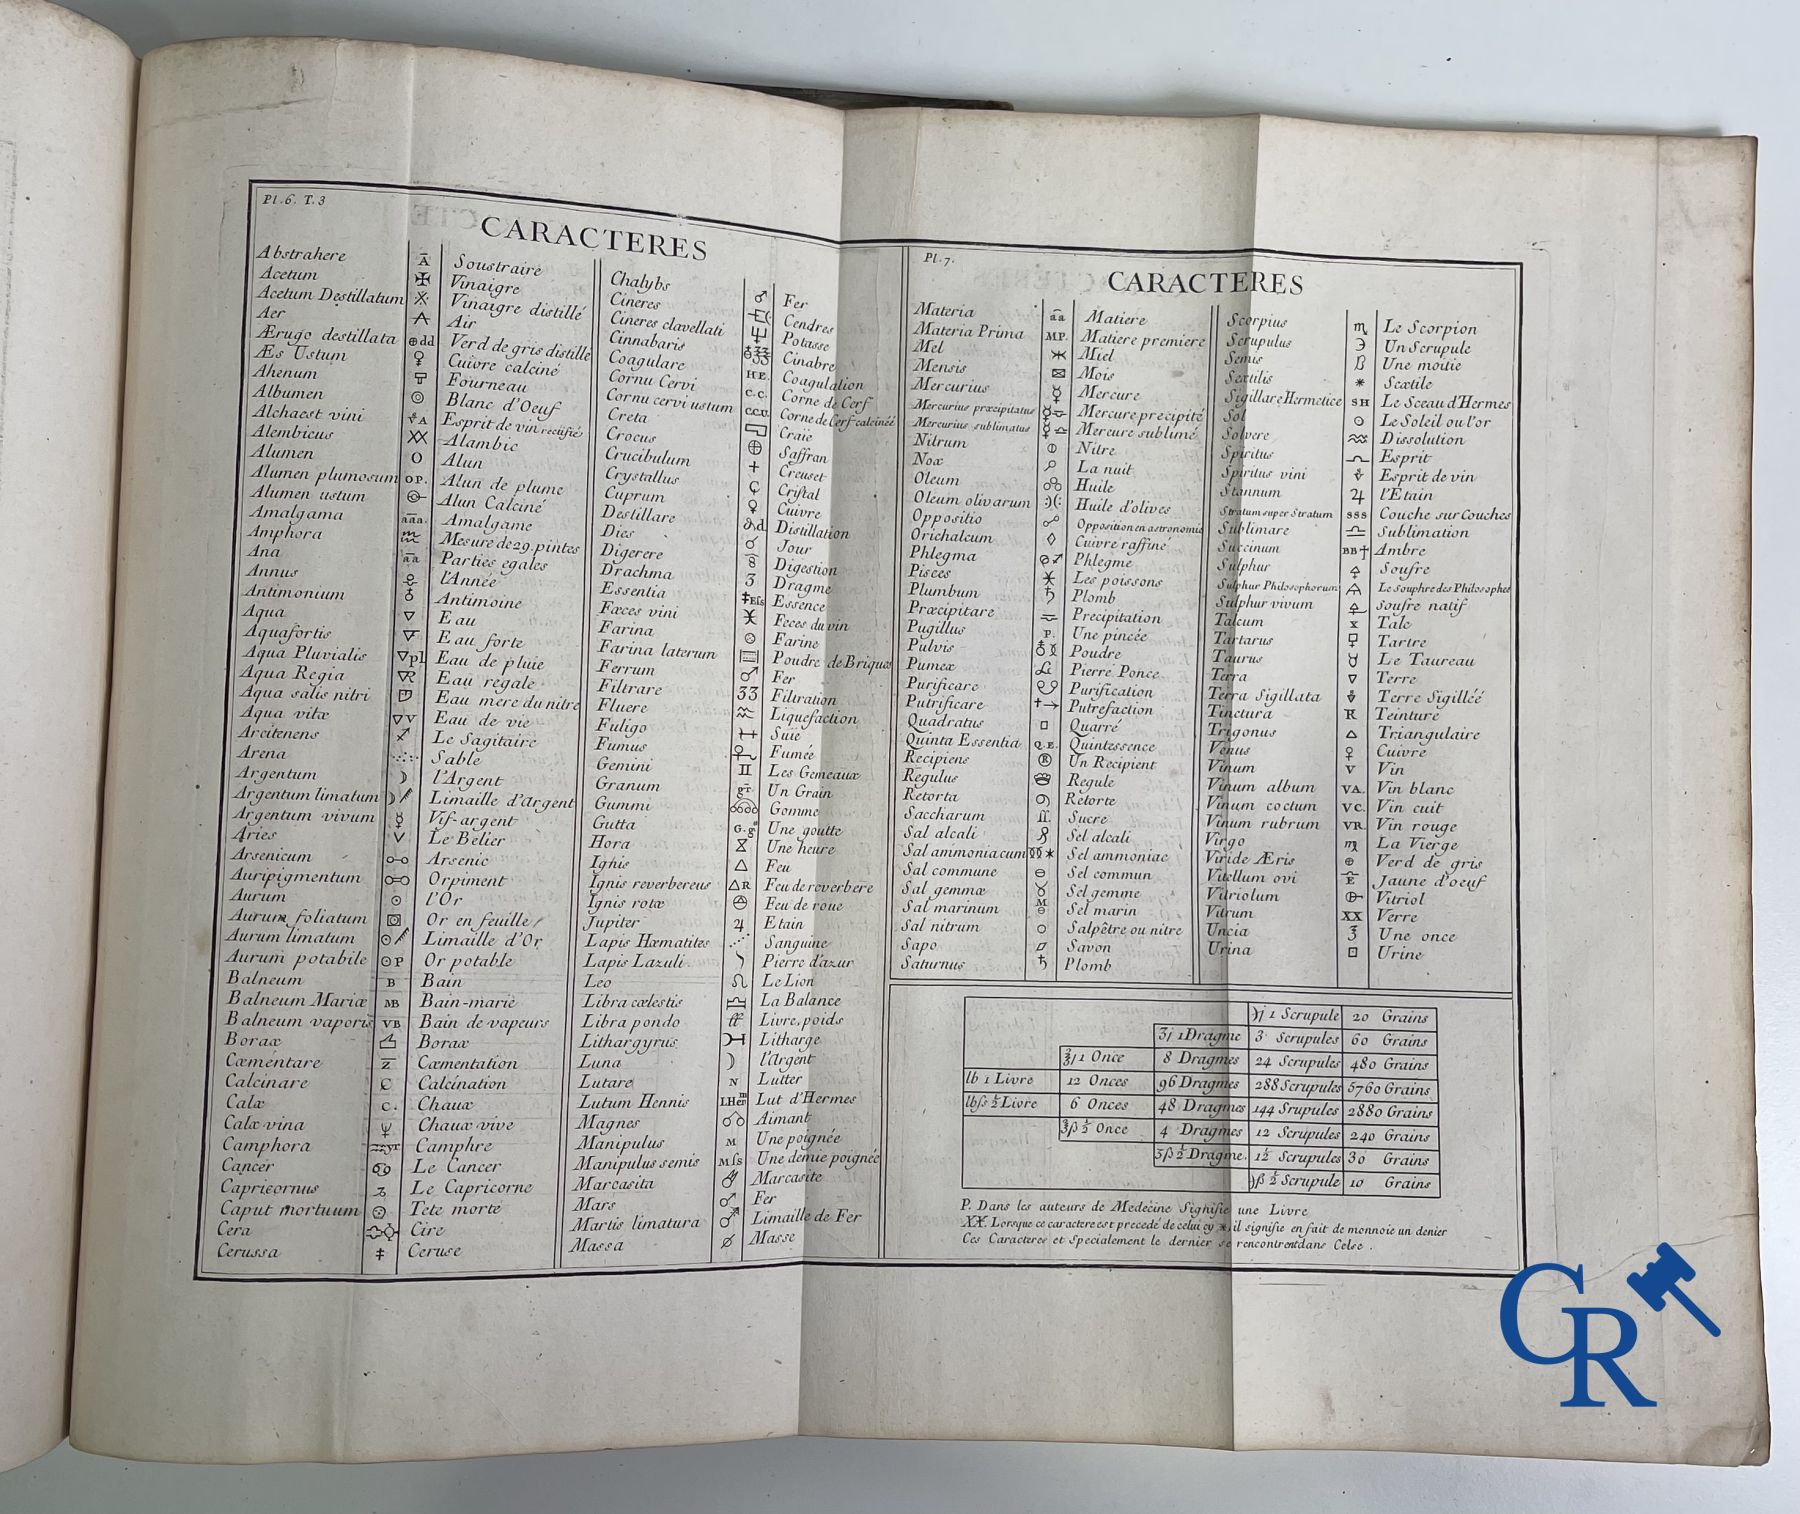 Pl. 6. T. 3
CARACTERES
Abstrahere Ā Soustraire
Acetum Vinaigre
Acetum Destillatum Vinaigre distillé
Aer Air
Ærugo destillata ⊕dd Verd de gris distillé
Æs Ustum ♀ Cuivre calciné
Ahenum Fourneau
Albumen Blanc d'Oeuf
Alchaest vini Esprit de vin rectifié
Alembicus XX Alambic
Alumen O Alun
Alumen plumosum OP. Alun de plume
Alumen ustum Alun Calciné
Amalgama aaa. Amalgame
Amphora Mesure de 29. pintes
Ana aa Parties egales
Annus l'Année
Antimonium ♁ Antimoine
Aqua ▽ Eau
Aquafortis Eau forte
Aqua Pluvialis ▽pl Eau de pluie
Aqua Regia ▽R Eau regale
Aqua salis nitri Eau mere du nitre
Aqua vitæ ▽V Eau de vie
Arcitenens ♐ Le Sagitaire
Arena Sable
Argentum ☽ l'Argent
Argentum limatum Limaille d'Argent
Argentum vivum ☿ Vif-argent
Aries V Le Belier
Arsenicum o-o Arsenic
Auripigmentum Orpiment
Aurum ☉ l'Or
Aurum foliatum Or en feuille
Aurum limatum Limaille d'Or
Aurum potabile ☉P Or potable
Balneum B Bain
Balneum Mariæ MB Bain-marie
Balneum vaporis VB Bain de vapeurs
Borax Borax
Cæmentare Z Cæmentation
Calcinare C Calcination
Calx C. Chaux
Calx vina Ψ Chaux vive
Camphora Camphre
Cancer ♋ Le Cancer
Capricornus ♑ Le Capricorne
Caput mortuum Tete morte
Cera Cire
Cerussa ‡ Ceruse
Chalybs ♂ Fer
Cineres Cendres
Cineres clavellati Potasse
Cinnabaris Cinabre
Coagulare HE. Coagulation
Cornu Cervi C.C. Corne de Cerf
Cornu cervi ustum C.C.U. Corne de Cerf calcinée
Creta Craie
Crocus ⊕ Saffran
Crucibulum + Creuset
Crystallus Cristal
Cuprum ♀ Cuivre
Destillare Distillation
Dies Jour
Digerere Digestion
Drachma ʒ Dragme
Essentia ‡Ess Essence
Fæces vini Feces du vin
Farina Farine
Farina laterum Poudre de Briques
Ferrum ♂ Fer
Filtrare 33 Filtration
Fluere Liquefaction
Fuligo Suie
Fumus Fumée
Gemini ♊ Les Gemeaux
Granum gr Un Grain
Gummi Gomme
Gutta G. g Une goutte
Hora Une heure
Ighis △ Feu
Ignis reverbereus △R Feu de reverbere
Ignis rotæ Feu de roue
Jupiter ♃ Etain
Lapis Hæmatites Sanguine
Lapis Lazuli Pierre d'azur
Leo ♌ Le Lion
Libra cælestis ♎ La Balance
Libra pondo Livre, poids
Lithargyrus Litharge
Luna ☽ l'Argent
Lutare N Lutter
Lutum Hennis LHerm Lut d'Hermes
Magnes Aimant
Manipulus M Une poignée
Manipulus semis Mſs Une demie poignée
Marcasita Marcasite
Mars ♂ Fer
Martis limatura Limaille de Fer
Massa Masse
Pl. 7.
CARACTERES
Materia aa Matiere
Materia Prima MP. Matiere premiere
Mel Miel
Mensis Mois
Mercurius ☿ Mercure
Mercurius præcipitatus Mercure precipité
Mercurius sublimatus Mercure sublimé
Nitrum Nitre
Nox La nuit
Oleum Huile
Oleum olivarum Huile d'olives
Oppositio ☍ Opposition en astronomie
Orichalcum ◊ Cuivre raffiné
Phlegma Phlegme
Pisces Les poissons
Plumbum ♄ Plomb
Præcipitare Precipitation
Pugillus P. Une pincée
Pulvis Poudre
Pumex Pierre Ponce
Purificare Purification
Putrificare Putrefaction
Quadratus □ Quarré
Quinta Essentia Q.E. Quintessence
Recipiens Ⓡ Un Recipient
Regulus Regule
Retorta Retorte
Saccharum Sucre
Sal alcali Sel alcali
Sal ammoniacum Sel ammoniac
Sal commune ⊖ Sel commun
Sal gemmæ Sel gemme
Sal marinum Sel marin
Sal nitrum Salpêtre ou nitre
Sapo Savon
Saturnus ♄ Plomb
Scorpius ♏ Le Scorpion
Scrupulus ℈ Un Scrupule
Semis Une moitie
Sextilis * Sextile
Sigillare Hermetice SH Le Sceau d'Hermes
Sol Le Soleil ou l'or
Solvere Dissolution
Spiritus Esprit
Spiritus vini Esprit de vin
Stannum ♃ l'Etain
Stratum super Stratum SSS Couche sur Couches
Sublimare Sublimation
Succinum BB† Ambre
Sulphur Soufre
Sulphur Philosophorum Le souphre des Philosophes
Sulphur vivum Soufre natif
Talcum X Talc
Tartarus Tartre
Taurus ♉ Le Taureau
Terra Terre
Terra Sigillata Terre Sigillée
Tinctura R Teinture
Trigonus △ Triangulaire
Venus ♀ Cuivre
Vinum V Vin
Vinum album VA. Vin blanc
Vinum coctum VC. Vin cuit
Vinum rubrum VR. Vin rouge
Virgo ♍ La Vierge
Viride Æris ⊕ Verd de gris
Vitellum ovi Jaune d'oeuf
Vitriolum Vitriol
Vitrum XX Verre
Uncia Une once
Urina Urine
℈j 1 Scrupule 20 Grains
ʒj 1 Dragme 3 Scrupules 60 Grains
℥j 1 Once 8 Dragmes 24 Scrupules 480 Grains
lb 1 Livre 12 Onces 96 Dragmes 288 Scrupules 5760 Grains
lbſs ½ Livre 6 Onces 48 Dragmes 144 Srupules 2880 Grains
℥ß ½ Once 4 Dragmes 12 Scrupules 240 Grains
ʒß ½ Dragme. 1½ Scrupules 30 Grains
℈ß ½ Scrupule 10 Grains
P. Dans les auteurs de Medecine Signifie une Livre
XX Lorsque ce caractere est precedé de celui cy *, il signifie en fait de monnoie un denier
Ces Caracteres et Specialement le dernier se rencontrent dans Celse.
GR